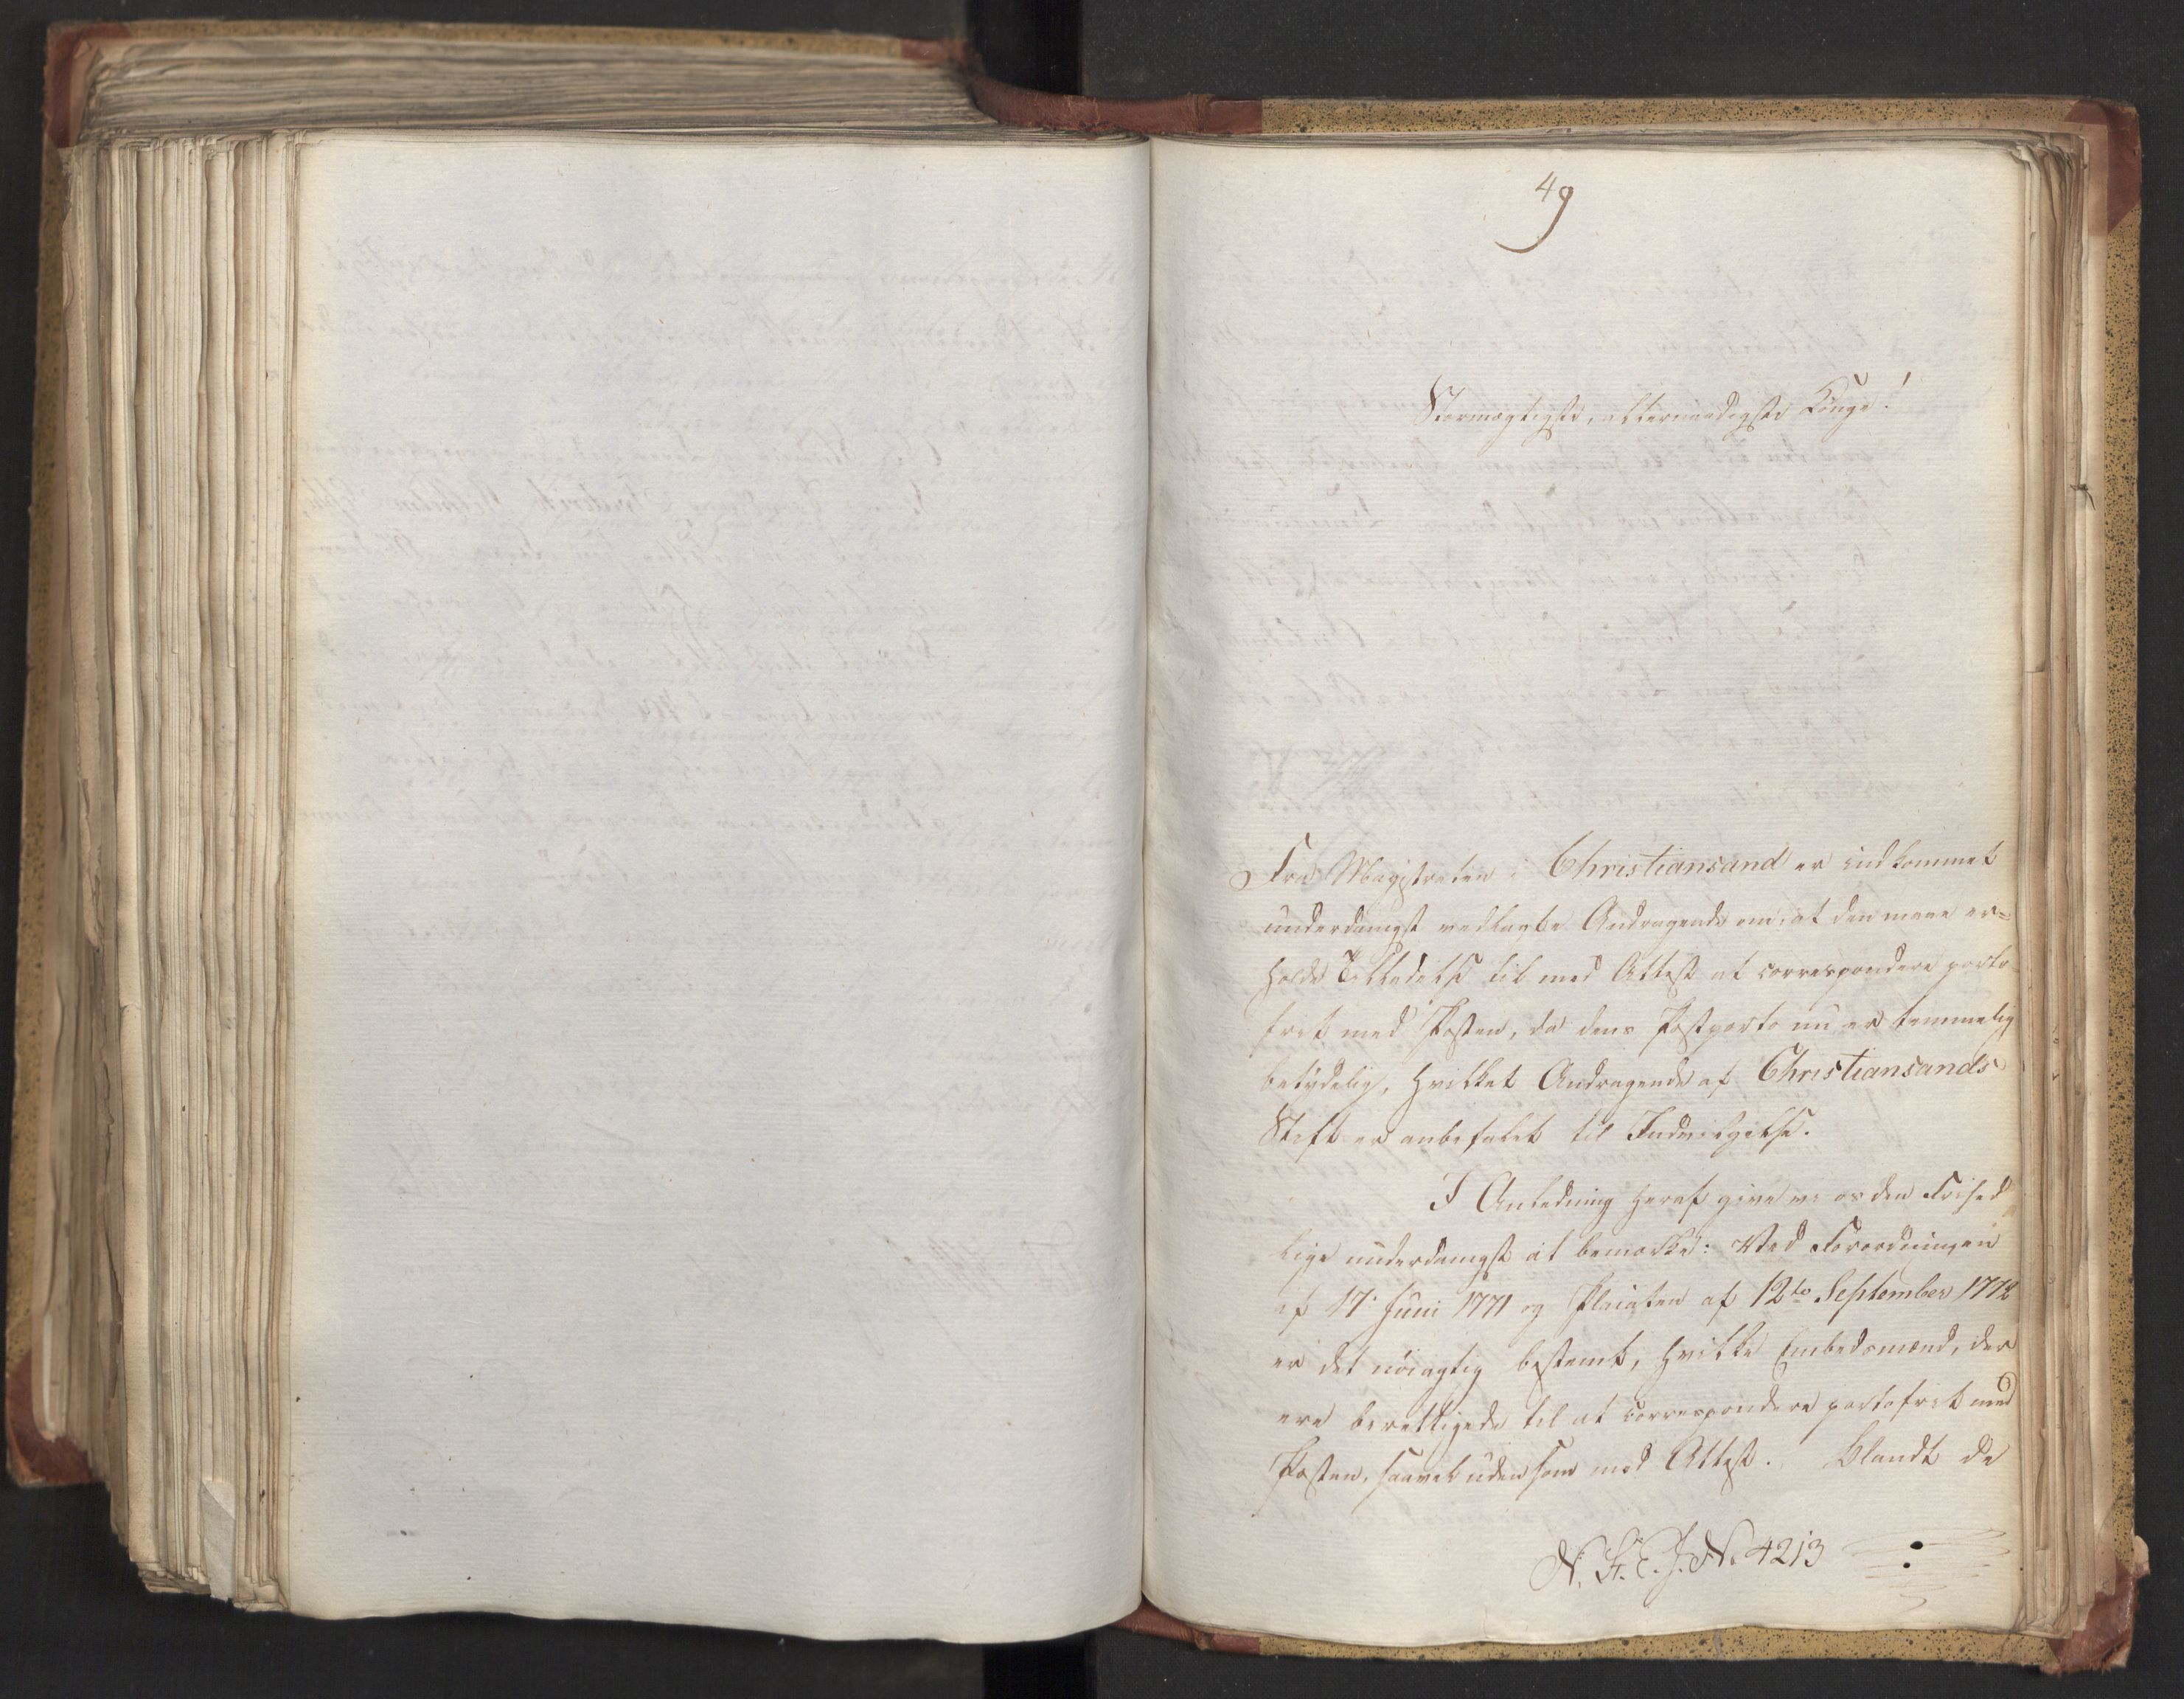 49
Stormægtigste, allernaadigste Konge!
Fra Magistraten i Christiansand er indkommet
underdanigst vedlagte Andragende om, at den maae er-
holde Tilladelse til med Attest at correspondere porto
frit med Posten, da dens Postporto nu er temmelig
betydelig, hvilket Andragende af Christiansands
Stift er anbefalet til Indvilgelse.
I Anledning heraf give vi os den Frihed
lige underdanigst at bemærke: Ved Forordningen
af 17. Juni 1771 og Placaten af 12te September 1772
er det nöiagtig bestemt, hvilke Embedsmænd, der
ere berettigede til at correspondere portofrit med
Posten, saavel uden som med Attest. Blandt de
N. F. E. J. No. 4213